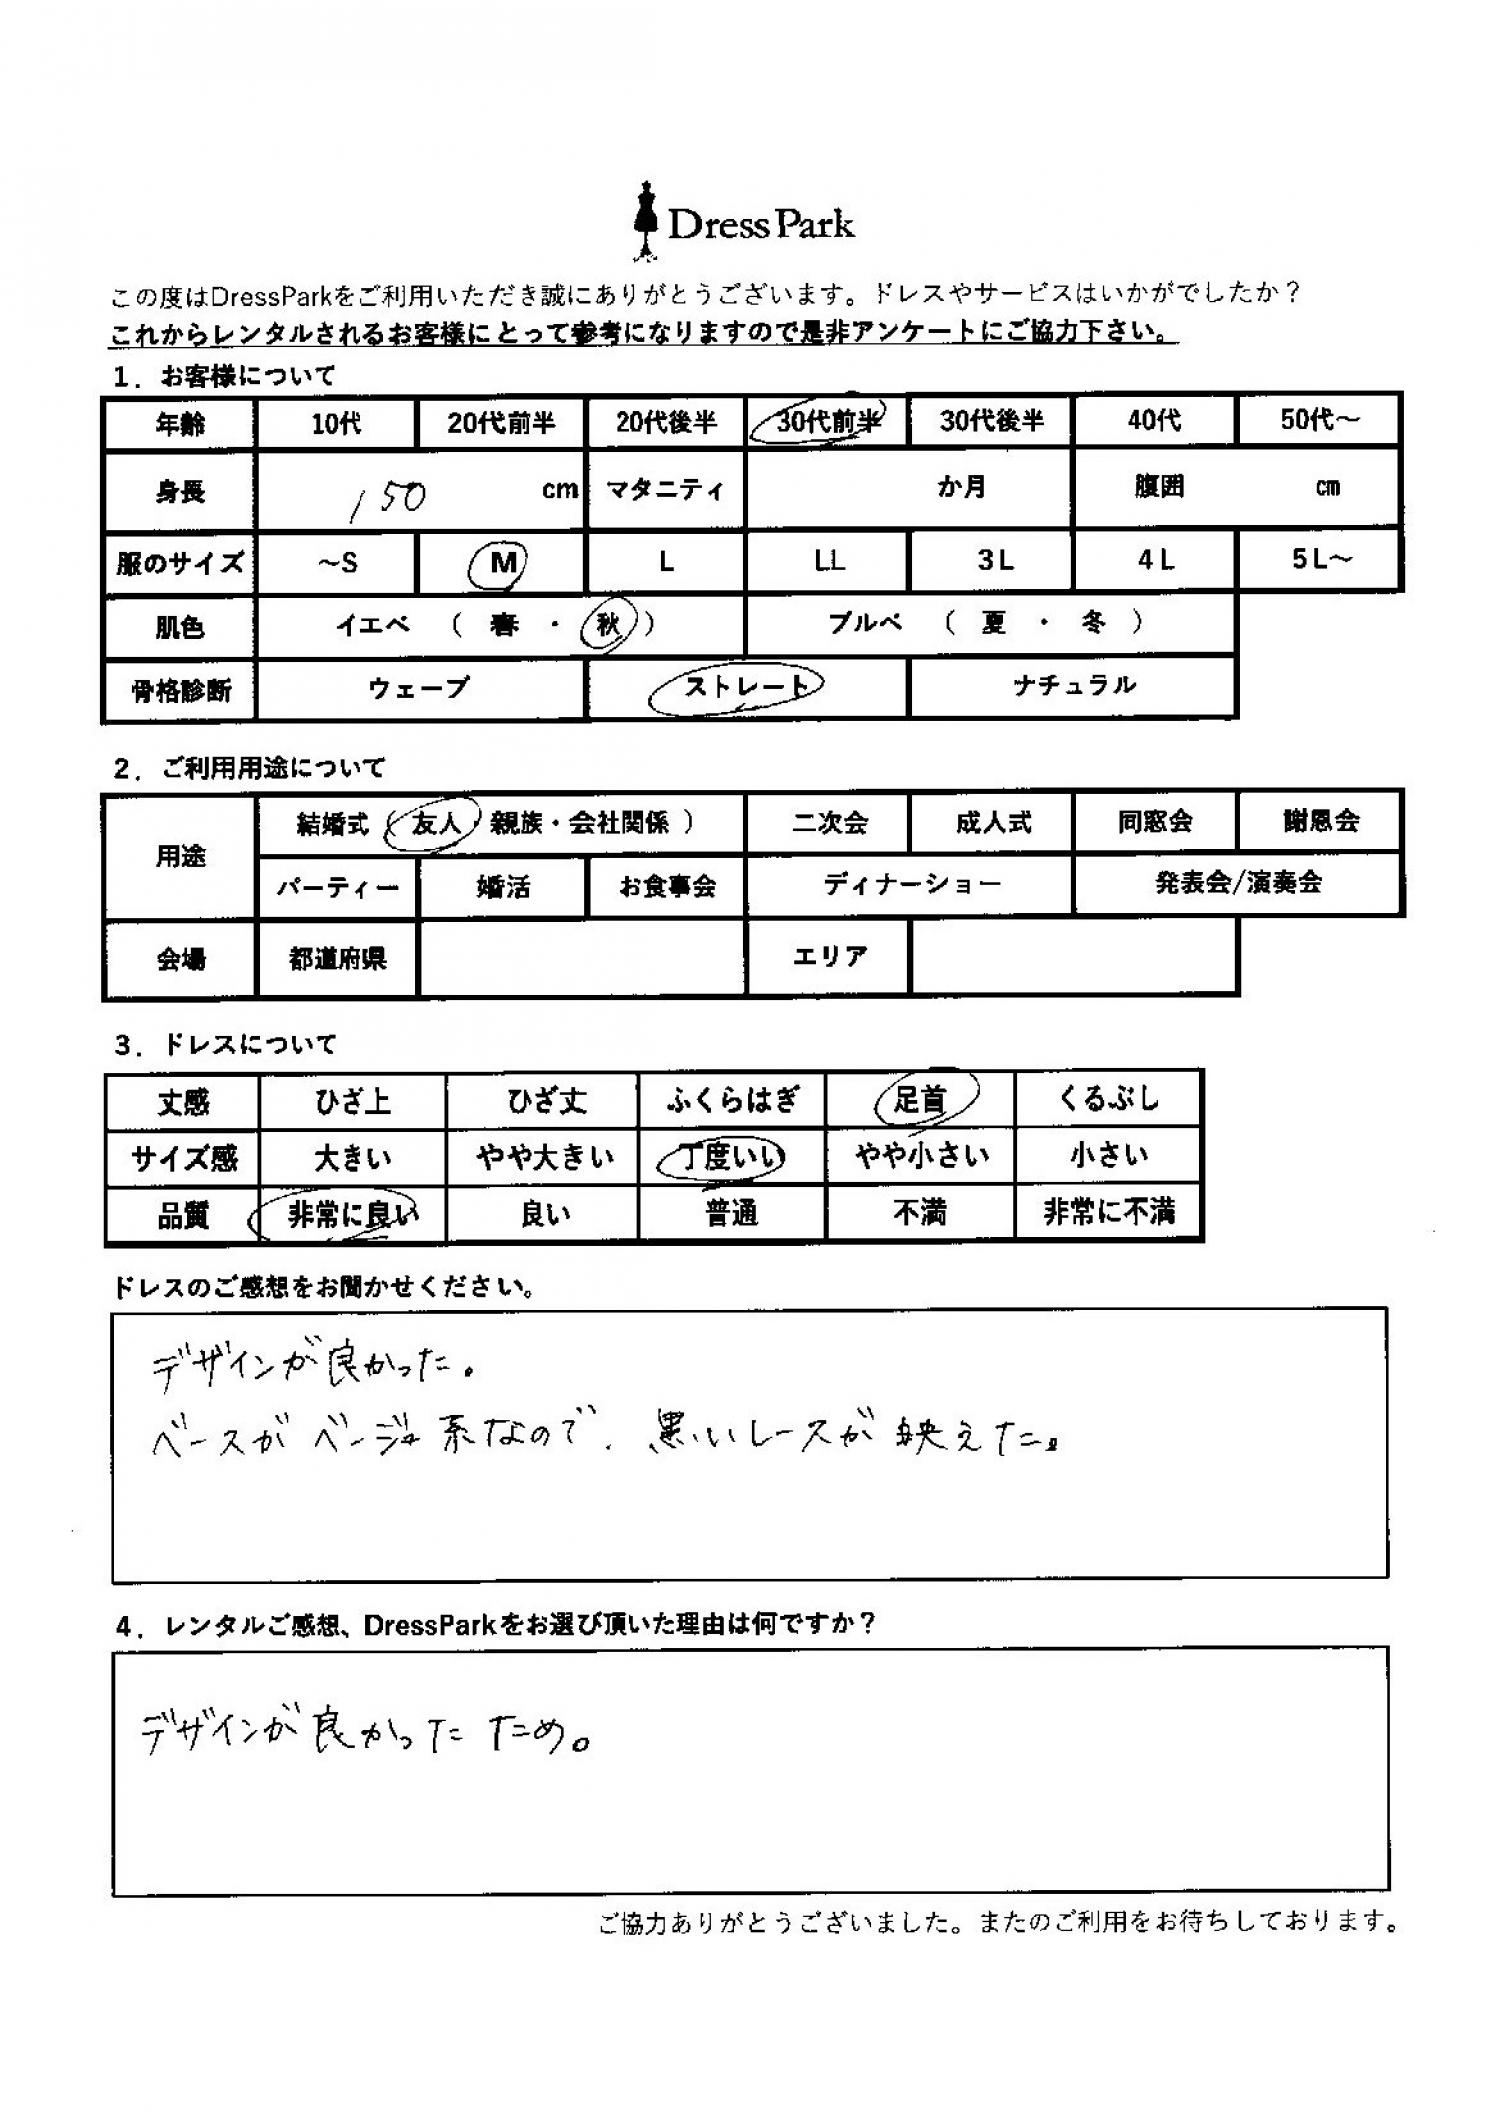 Dress Park
この度はDressParkをご利用いただき誠にありがとうございます。ドレスやサービスはいかがでしたか？
これからレンタルされるお客様にとって参考になりますので是非アンケートにご協力下さい。
1．お客様について
年齢 10代 20代前半 20代後半 30代前半 30代後半 40代 50代～
身長 150 cm マタニティ か月 腹囲 cm
服のサイズ ～S M L LL 3L 4L 5L～
肌色 イエベ （ 春 ・ 秋 ） ブルベ （ 夏 ・ 冬 ）
骨格診断 ウェーブ ストレート ナチュラル
2．ご利用用途について
用途 結婚式（友人・親族・会社関係 ） 二次会 成人式 同窓会 謝恩会
パーティー 婚活 お食事会 ディナーショー 発表会/演奏会
会場 都道府県 エリア
3．ドレスについて
丈感 ひざ上 ひざ丈 ふくらはぎ 足首 くるぶし
サイズ感 大きい やや大きい 丁度いい やや小さい 小さい
品質 非常に良い 良い 普通 不満 非常に不満
ドレスのご感想をお聞かせください。
デザインが良かった。
ベースがベージュ系なので、黒いレースが映えた。
4．レンタルご感想、DressParkをお選び頂いた理由は何ですか？
デザインが良かったため。
ご協力ありがとうございました。またのご利用をお待ちしております。